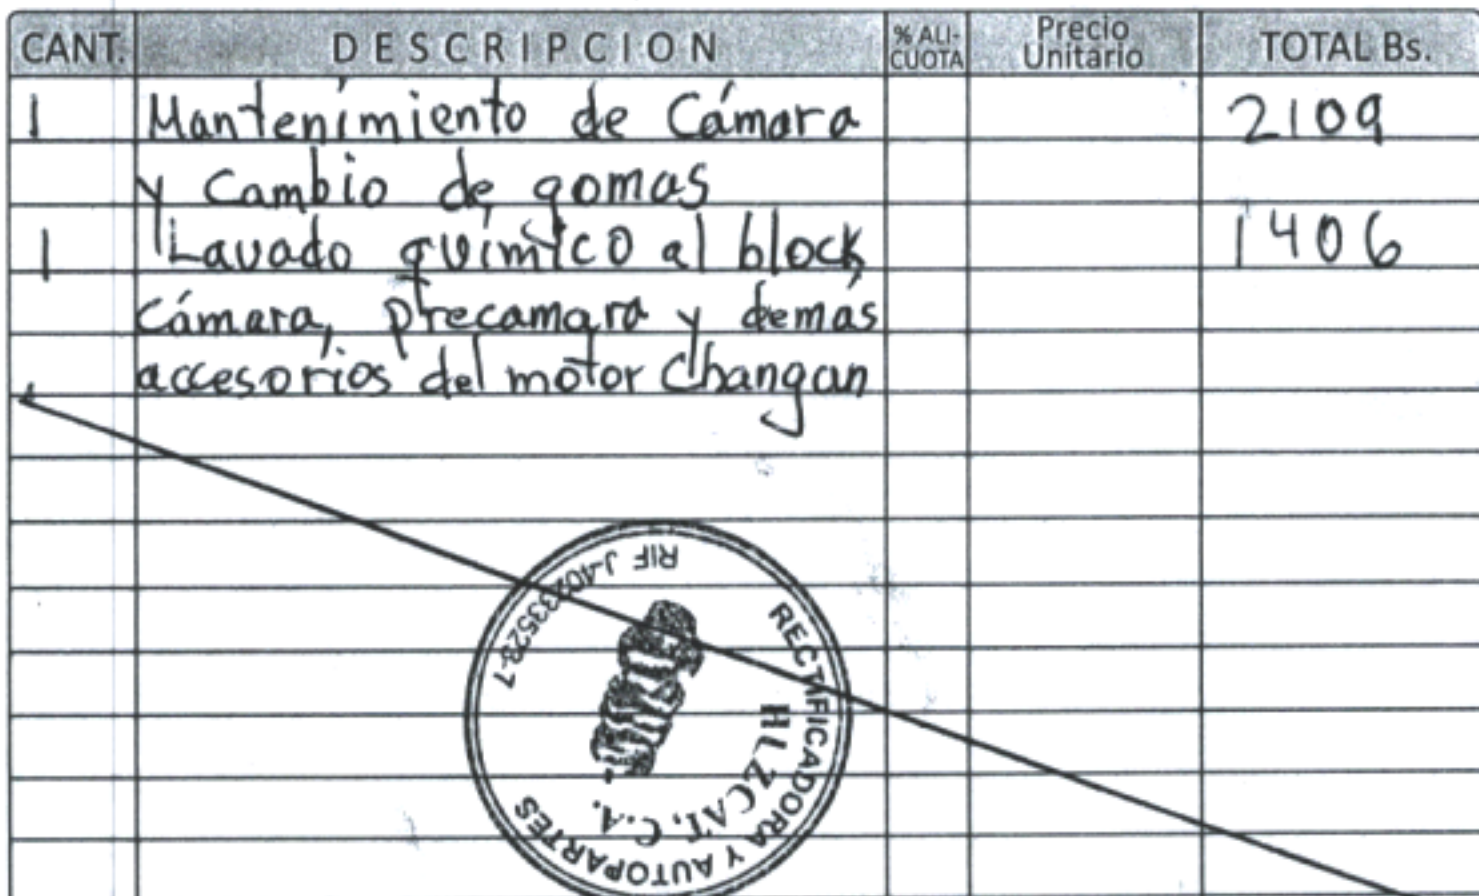 CANT. DESCRIPCION % ALI-CUOTA Precio Unitario TOTAL Bs.
1 Mantenimiento de Cámara 2109
y Cambio de gomas
1 Lavado químico al block, 1406
cámara, precamara y demás
accesorios del motor Changan
RECTIFICADORA Y AUTOPARTES
HLZCAT, C.A.
RIF J-40233523-7